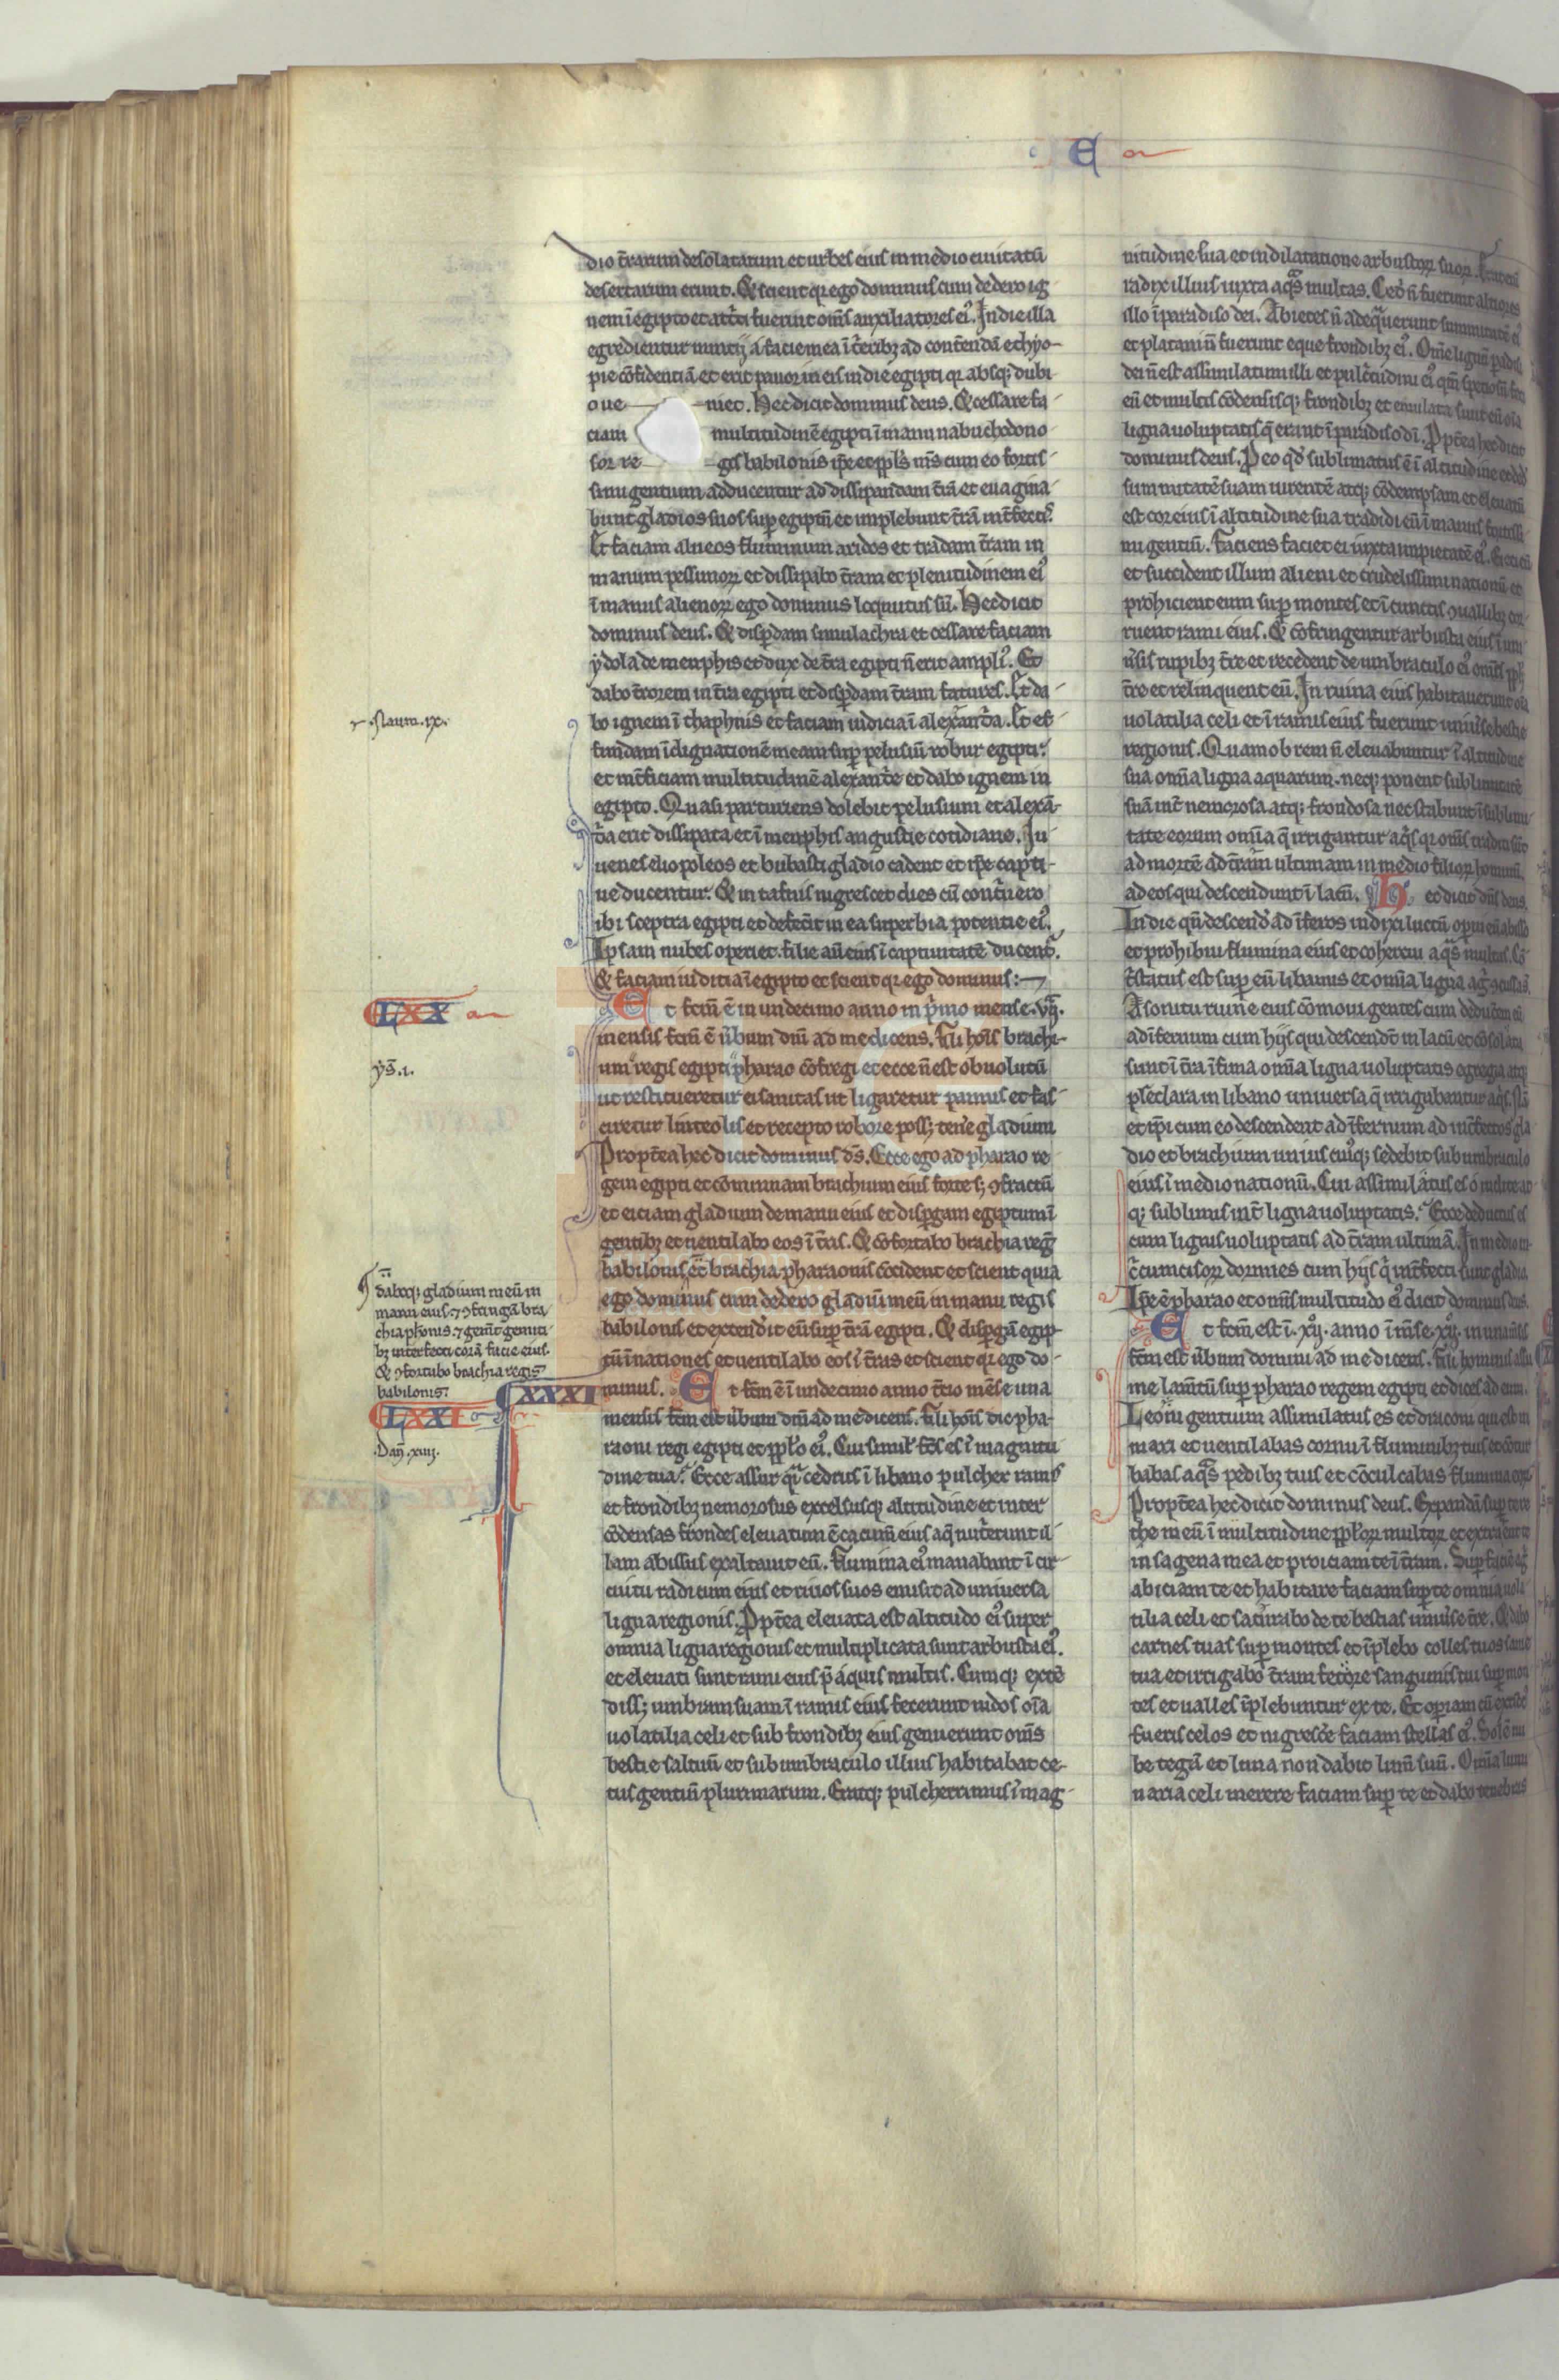 E
dio t̄rarum desolatarum et urbes eius in medio ciuitatū
desertarum erunt. Et scient qr ego dominus cum dedero ig
nem ī egipto et att̄ti fuerint om̄s auxiliatores ei᾿. In die illa
egredientur nuntij a facie mea ī t̄eribꝫ ad conterendā ethyo-
pie cōfidentiā et erit pauor in eis in die egipti qr absqꝫ dubi
o ue niet. Hec dicit dominus deus. Et cessare fa
ciam multitudinē egipti ī manu nabuchodono
sor re gis babilonis ip̄e et ppl̄s ei᾿ cum eo fortis
simi gentium adducentur ad dissipandam t̄rā et euagina
bunt gladios suos sup egiptū et implebunt t̄rā int̄fectis.
Et faciam alueos fluminum aridos et tradam t̄ram in
manum pessimoꝝ et dissipabo t̄ram et plenitudinem ei᾿
ī manus alienoꝝ ego dominus locutus sū. Hec dicit
dominus deus. Et disꝑdam simulachra et cessare faciam
ydola de memphis et dux de t̄ra egipti n̄ erit ampli᾿. Et
dabo t̄rorem in t̄ra egipti et disꝑdam t̄ram fatures. Et da
bo ignem ī thaphnis et faciam iudicia ī alexandria. Et ef
fundam īdignationē meam sup pelusiū robur egipti
et int̄ficiam multitudinē alexandrie et dabo ignem in
egipto. Quasi parturiens dolebit pelusium et alexā-
dria erit dissipata et ī memphis angustie cotidiane. Iu
uenes eliopoleos et bubasti gladio cadent et ip̄e capti-
ue ducentur. Et in tafnis nigrescet dies cū contriuero
ibi sceptra egipti et defecerit in ea superbia potentie ei᾿.
Ipsam nubes operiet. filie aūt eius ī captiuitatē ducent᾿.
Et faciam iuditia ī egipto et scient qr ego dominus:
Et fctm̄ ē in undecimo anno in p̄mo mense. vij.
mensis fctm̄ ē ūbum dn̄i ad me dicens. Fili hoīs brachi-
um regis egipti pharao cōfregi et ecce n̄ est obuolutū
ut restitueretur ei sanitas ut ligaretur pannis et fas
ciretur linteolis et recepto robore possꝫ tenere gladium
Propt̄ea hec dicit dominus ds̄. Ecce ego ad pharao re
gem egipti et cōminuam brachium eius forte sꝫ ꝯfractū
et eiciam gladium de manu eius et disꝑgam egiptum ī
gentibꝫ et uentilabo eos ī t̄ris. Et cōfortabo brachia regꝭ
babilonis et brachia pharaonis cōcident et scient quia
ego dominus cum dedero gladiū meū in manu regis
babilonis et extenderit eū sup t̄rā egipti. Et disꝑgā egip-
tū ī nationes et uentilabo eos ī t̄ras et scient qr ego do-
minus. Et fctm̄ ē ī undecimo anno t̄cio mēse una
mensis fctm̄ est ūbum dn̄i ad me dicens. Fili hoīs dic pha-
raoni regi egipti et ppl̄o ei᾿. Cui similis fc̄s es ī magnitu
dine tua. Ecce assur qi cedrus ī libano pulcher ramis
et frondibꝫ nemorosus excelsusqꝫ altitudine et inter
cōdensas frondes eleuatum ē cacumē eius aq̄ nutrierunt il
lam abissus exaltauit eū. Flumina ei᾿ manabant ī cir
cuitu radicum eius et riuos suos emisit ad uniuersa
ligna regionis. Propt̄ea eleuata est altitudo ei᾿ super
omnia ligna regionis et multiplicata sunt arbusta ei᾿.
et eleuati sunt rami eius p̄ aquis multis. Cumqꝫ extē
dissꝫ umbram suam ī ramis eius fecerunt nidos oīa
uolatilia celi et sub frondibꝫ eius genuerunt om̄s
bestie saltuū et sub umbraculo illius habitabat ce-
tus gentiū plurimarum. Eratqꝫ pulcherrimus ī mag
Naum. ix.
LXX
ys. i.
dabo gladium meū in
manu eius. ⁊ ꝯfringā bra
chia ph̄onis. ⁊ gem̄t gemiti
bꝫ interfecti corā facie eius.
Et ꝯfortabo brachia regis
babilonis
XXXI
LXXI
Dan̄. xiiij.
nitudine sua et in dilatatione arbustoꝝ suoꝝ. Erat enī
radix illius iuxta aqs multas. Cedri n̄ fuerunt altiores
illo ī paradiso dei. Abietes n̄ adequerunt summitatē ei᾿
et platani n̄ fuerunt eque frondibꝫ ei᾿. Omne lignū padisi
dei n̄ est assimilatum illi et pulcritudini ei᾿ qm̄ speciosū feci
eū et multis cōdensisqꝫ frondibꝫ et emulata sunt eū oīa
ligna uoluptatis q̄ erant ī paradiso dī. Propt̄ea hec dicit
dominus deus. Pro eo qd sublimatus ē ī altitudine et dedit
summitatē suam uirentē atqꝫ cōdempsam et eleuatū
est cor eius ī altitudine sua tradidi eū ī manus fortissi
mi gentiū. Faciens faciet ei iuxta impietatē ei᾿. Eieci eū
et succident illum alieni et crudelissimi nationū et
prohicient eum sup montes et ī cunctis ꝯuallibꝫ cor
ruent rami eius. Et cōfringentur arbusta eius ī uni
ūsis rupibꝫ t̄re et recedent de umbraculo ei᾿ om̄s ppl̄i
t̄re et relinquent eū. In ruina eius habitauerunt oīa
uolatilia celi et ī ramis eius fuerunt uniūse bestie
regionis. Quam ob rem n̄ eleuabuntur ī altitudine
sua om̄a ligna aquarum. neqꝫ ponent sublimitatē
suā int̄ nemorosa atqꝫ frondosa nec stabunt ī sublimi
tate eorum omīa q̄ irrigantur aqs qr om̄s traditi sūt
ad mortē ad t̄ram ultimam in medio filioꝝ hominū.
ad eos qui descendunt ī lacū. Hec dicit dn̄s deus.
In die qn̄ descendit ad īferos induxi luctū operui eū abisso
et prohibui flumina eius et cohercui aqs multas. Cō
tristatus est sup eū libanus et om̄ia ligna agri ꝯcussa sūt.
A sonitu ruine eius cōmoui gentes cum deducerem eū
ad īfernum cum hijs qui descendebant in lacū et cōsolata
sunt ī t̄ra īfima om̄a ligna uoluptatis egregia atqꝫ
p̄clara in libano uniuersa q̄ irrigabantur aqs. Nā
et ip̄i cum eo descendent ad īfernum ad int̄fectos gla
dio et brachium unius cuiusqꝫ sedebit sub umbraculo
eius ī medio nationū. Cui assimilatus es o inclite at
qꝫ sublimis int̄ ligna uoluptatis. Ecce deductus es
cum lignis uoluptatis ad t̄ram ultimā. In medio in
c̄cumcisoꝝ dormies cum hijs q̄ int̄fecti sunt gladio
Ip̄e ē pharao et om̄is multitudo ei᾿ dicit dominus deus.
Et fctm̄ est ī. xij. anno ī mēse. xij. in una mēsis
fctm̄ est ūbum domini ad me dicens. Fili hominis assu
me lam̄tū sup pharao regem egipti et dices ad eum.
Leoni gentium assimilatus es et draconi qui est in
mari et uentilabas cornu ī fluminibꝫ tuis et cōtur
babas aqs pedibꝫ tuis et cōculcabas flumina eoꝝ
Propt̄ea hec dicit dominus deus. Expandā sup te re
the meū ī multitudine ppl̄oꝝ multoꝝ et extraham te
in sagena mea et proiciam te ī t̄ram. Sup faciē agri
abiciam te et habitare faciam sup te omnia uola
tilia celi et saturabo de te bestias uniūse t̄re. Et dabo
carnes tuas sup montes et īplebo colles tuos sanie
tua et irrigabo t̄ram fetore sanguinis tui sup mon
tes et ualles īplebuntur ex te. Et operiam cū extict᾿
fueris celos et nigrescere faciam stellas ei᾿. Solē nu
be tegā et luna non dabit lumē suū. Omīa lumi
naria celi merere faciam sup te et dabo tenebras